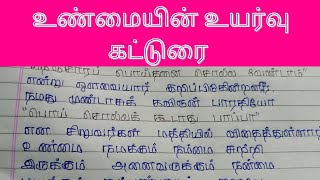 உண்மையின் உயர்வு
கட்டுரை
பொய்தனை சொல்ல வேண்டாம்"
என்று ஔவையார் கூறுகின்றனர்.
நமது முண்டாசுக் கவிஞன் பாரதியோ
"பொய் சொல்லக் கூடாது பாப்பா"
என சிறுவர்கள் மதியில் விதைத்துள்ளார்
உண்மை நமக்கும் நம்மை சுற்றி
இருக்கும் அனைவருக்கும் நன்மை